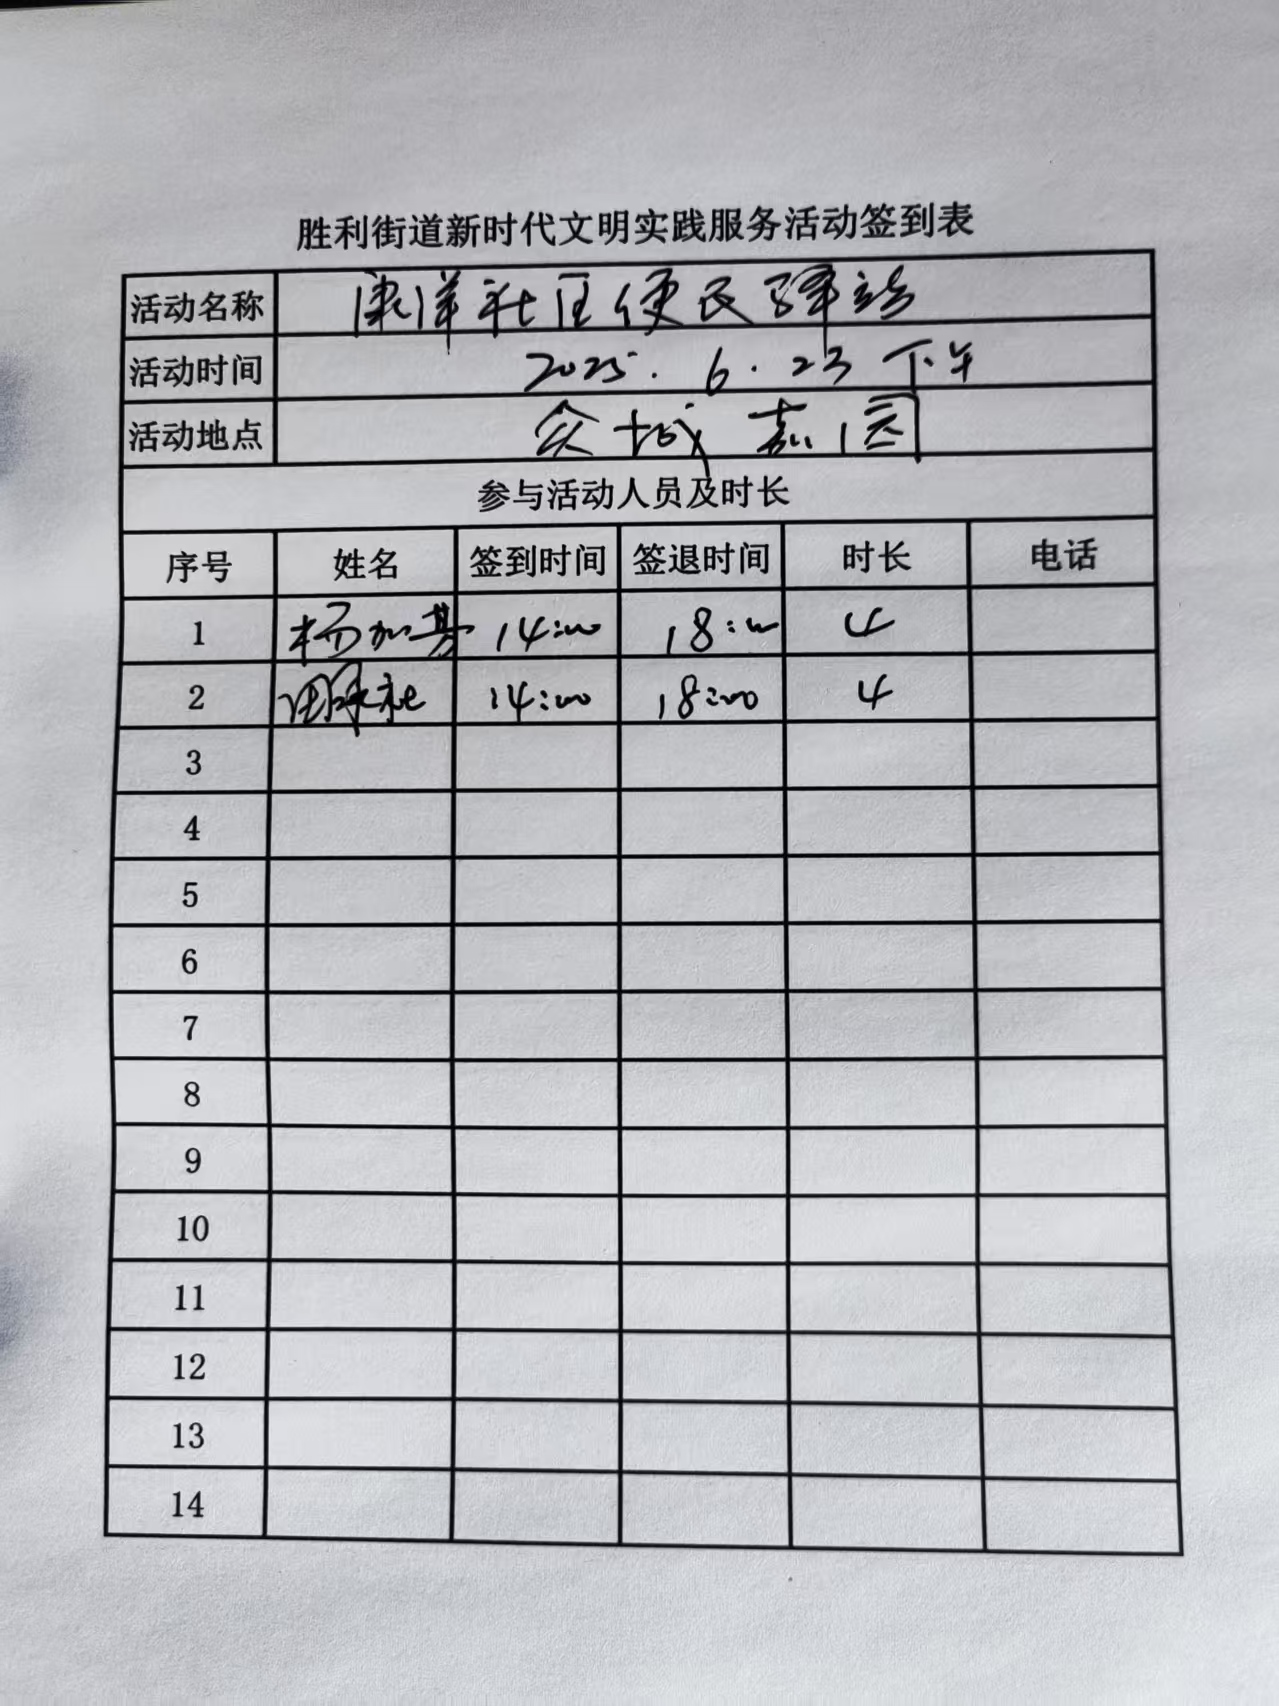 胜利街道新时代文明实践服务活动签到表
活动名称 康洋社区便民驿站
活动时间 2025.6.23 下午
活动地点 众城嘉园
参与活动人员及时长
序号 姓名 签到时间 签退时间 时长 电话
1 14:00 18:00 4
2 14:00 18:00 4
3
4
5
6
7
8
9
10
11
12
13
14